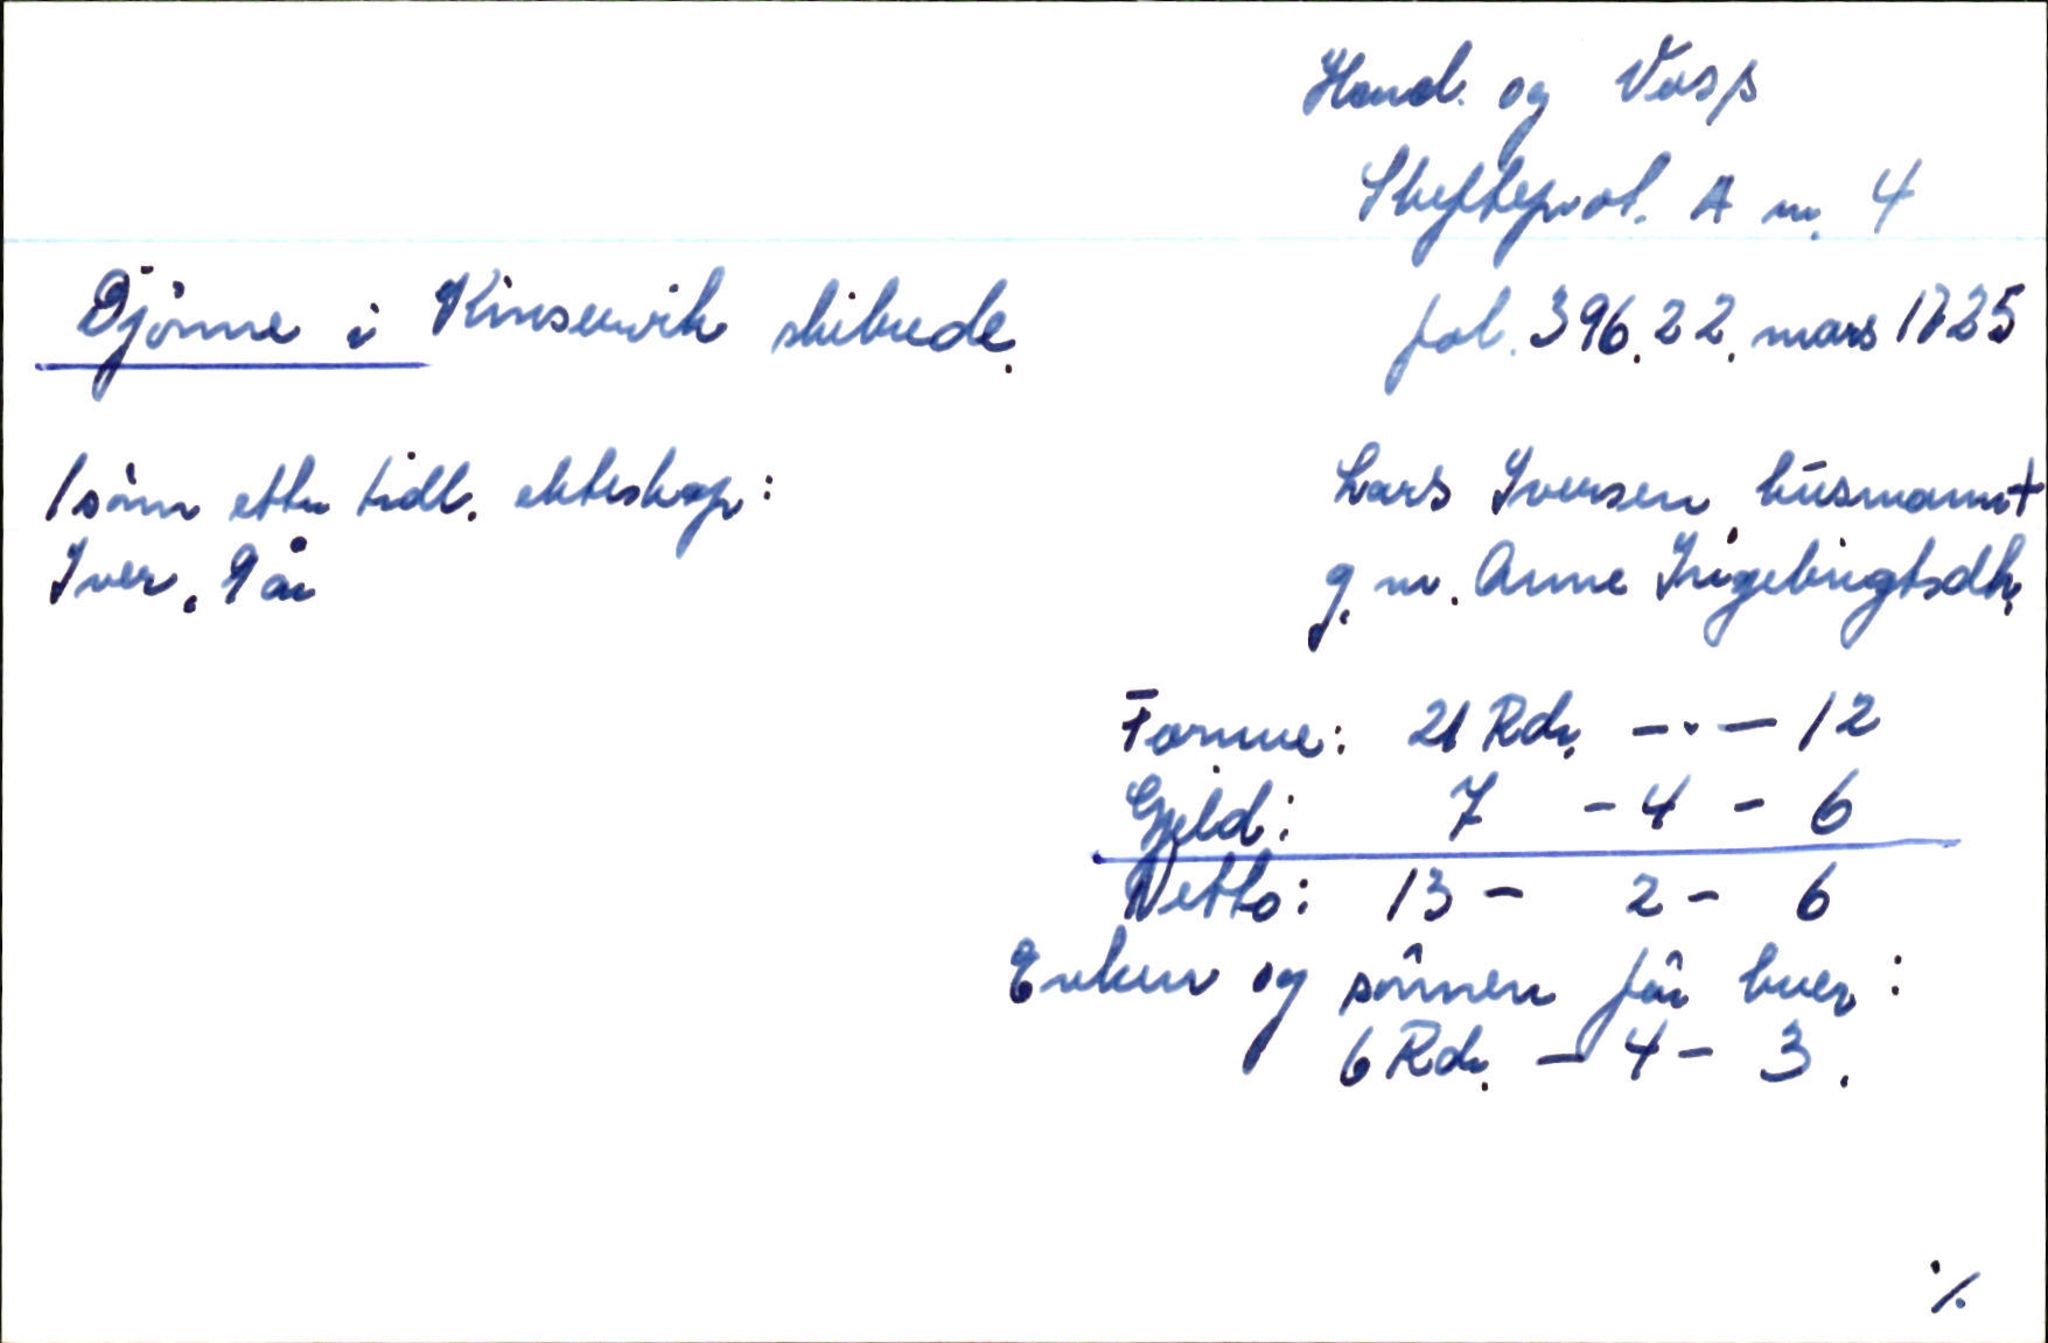 Hard. og Voss
Skifteprot. A nr. 4
Djönne i Kinservik skibrede.
fol. 396. 22. mars 1725
1 sönn etter tidl. ekteskap:
Lars Iversen, husmann +
Iver, 9 år
g. m. Anne Ingebrigtsdtr.
Formue: 21 Rdr. - . - 12
Gjeld: 7 - 4 - 6
Netto: 13 - 2 - 6
Enken og sönnen får hver:
6 Rdr. - 4 - 3.
·/.